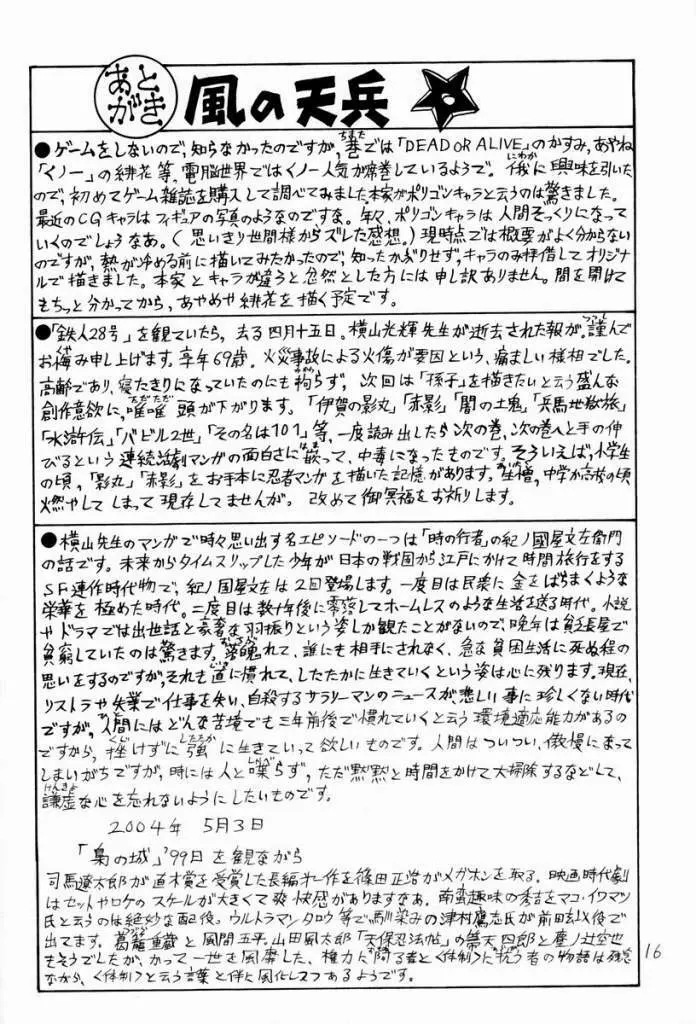 あとがき 風の天兵
●ゲームをしないので、知らなかったのですが、巷では「DEAD OR ALIVE」のかすみ、あやね
「くノ一」の緋花等、電脳世界ではくノ一人気が席巻しているようで。俄に興味を引いた
ので、初めてゲーム雑誌を購入して調べてみました。本家がポリゴンキャラと云うのは驚きました。
最近のCGキャラはフィギュアの写真のようなのですな。年々、ポリゴンキャラは人間そっくりになって
いくのでしょうなあ。(思いきり世間様からズレた感想。)現時点では概要がよく分からない
のですが、熱が冷める前に描いてみたかったので、知ったかぶりせず、キャラのみ拝借してオリジナ
ルで描きました。本家とキャラが違うと忽然とした方には申し訳ありません。間を開けて
もちっと分かってから、あやめや緋花を描く予定です。
●「鉄人28号」を観ていたら、去る四月十五日。横山光輝先生が逝去された報が。謹んで
お悔み申し上げます。享年69歳。火災事故による火傷が要因という、痛ましい様相でした。
高齢であり、寝たきりになっていたのにも拘らず、次回は「孫子」を描きたいと云う盛んな
創作意欲に、唯唯頭が下がります。「伊賀の影丸」「赤影」「闇の土鬼」「兵馬地獄旅」
「水滸伝」「バビル2世」「その名は101」等、一度読み出したら次の巻、次の巻へと手の伸
びるという連続活劇マンガの面白さに嵌って、中毒になったものです。そういえば、小学生
の頃、「影丸」「赤影」をお手本に忍者マンガを描いた記憶があります。生憎、中学か高校の頃
燃やしてしまって現存してませんが。改めて御冥福をお祈りします。
●横山先生のマンガで時々思い出す名エピソードの一つは「時の行者」の紀ノ國屋文左衛門
の話です。未来からタイムスリップした少年が日本の戦国から江戸にかけて時間旅行をする
SF連作時代物で、紀ノ国屋文左は2回登場します。一度目は民衆に金をばらまくような
栄華を極めた時代。二度目は数十年後に零落してホームレスのような生活を送る時代。小説
やドラマでは出世話と豪奢な羽振りという姿しか観たことがないので、晩年は貧乏長屋で
貧窮していたのは驚きます。落魄れて、誰にも相手にされなく、急な貧困生活に死ぬ程の
思いをするのですが、それも直に慣れて、したたかに生きていくという姿は心に残ります。現在、
リストラや失業で仕事を失い、自殺するサラリーマンのニュースが、悲しい事に珍しくない時代
ですが、人間にはどんな苦境でも三年前後で慣れていくと云う環境適応能力があるの
ですから、挫けずに強に生きていって欲しいものです。人間はついつい、傲慢になって
しまいがちですが、時には人と喋らず、ただ黙黙と時間をかけて大掃除するなどして、
謙虚な心を忘れないようにしたいものです。
2004年 5月3日
「梟の城」'99日を観ながら
司馬遼太郎が直木賞を受賞した長編第一作を篠田正浩がメガホンを取る。映画時代劇
はセットやロケのスケールが大きくて爽快感がありますなあ。南蛮趣味の秀吉をマコ・イワマツ
氏と云うのは絶妙な配役。ウルトラマンタロウ等で馴染みの津村鷹志氏が前田玄以役で
出てます。葛籠重蔵と風間五平。山田風太郎「天保忍法帖」の
もそうでしたが、かつて一世を風靡した、権力に阿る者と〈体制〉に抗う者の物語は残念
ながら、〈体制〉と云う言葉と伴に風化しつつあるようです。
16